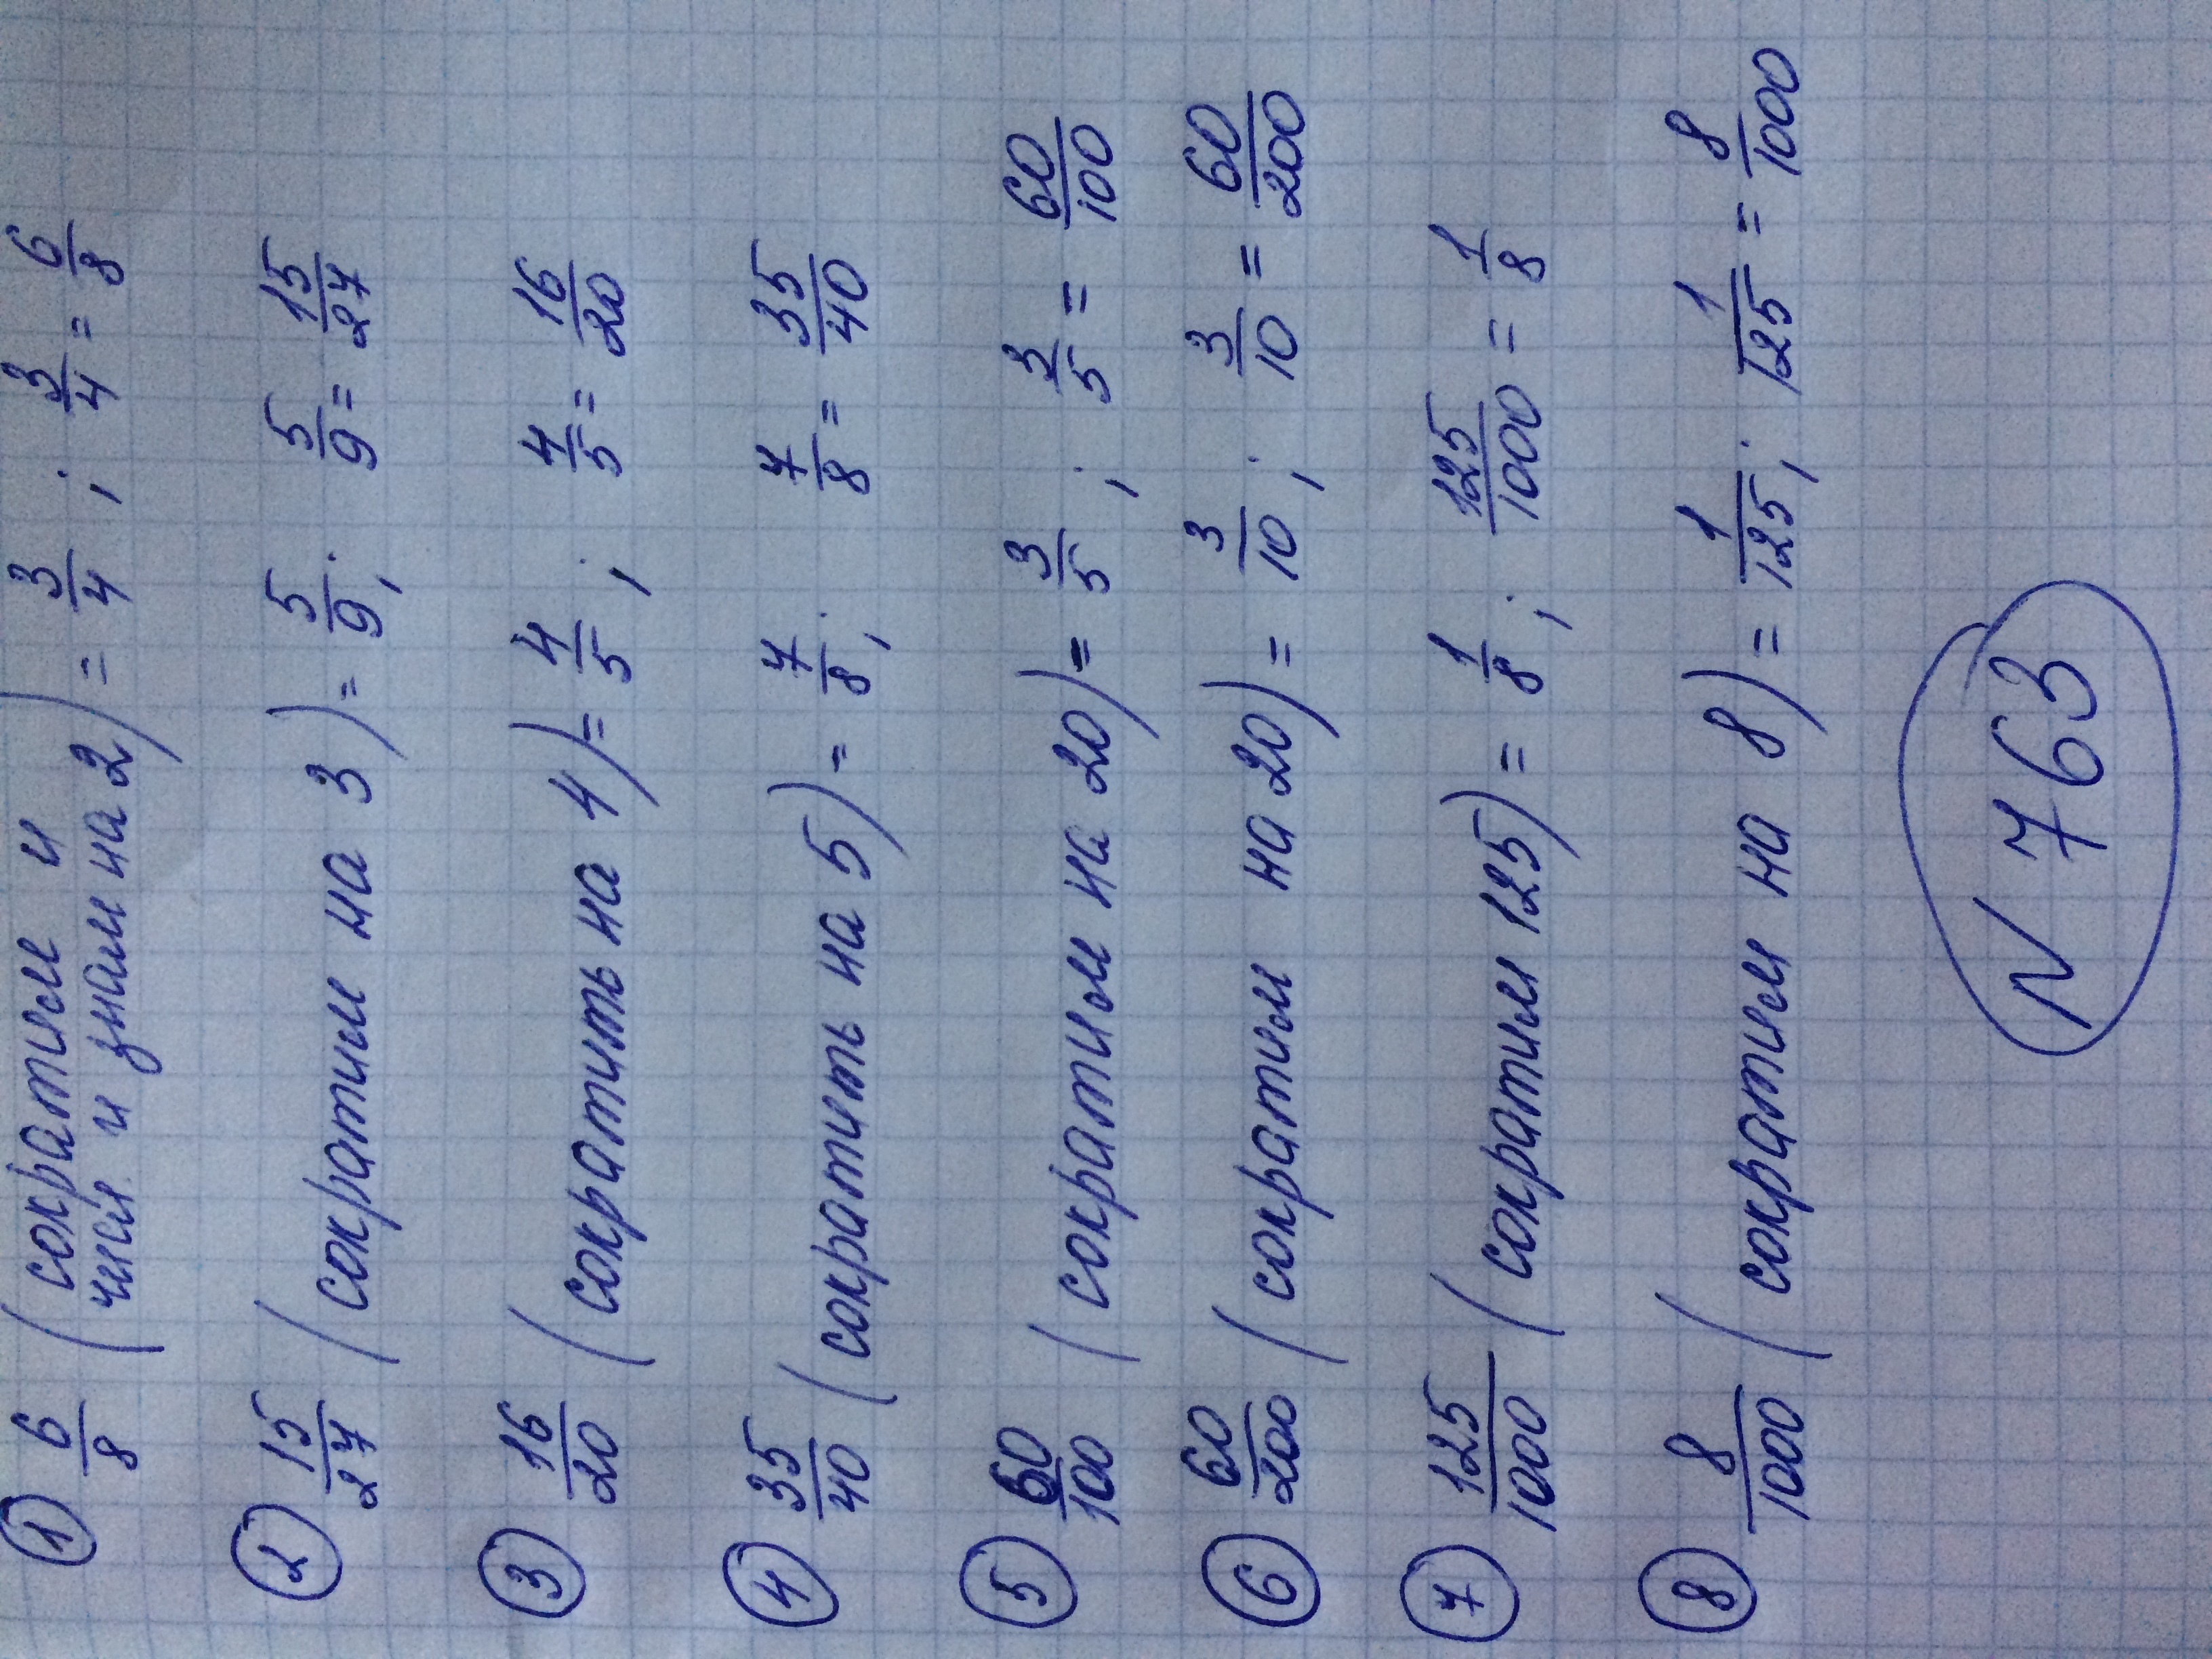 ① 6/8 (сократим и
числ. и знам на 2) = 3/4 ; 3/4 = 6/8
② 15/27 (сократим на 3) = 5/9; 5/9 = 15/27
③ 16/20 (сократить на 4) = 4/5 ; 4/5 = 16/20
④ 35/40 (сократить на 5) = 7/8; 7/8 = 35/40
⑤ 60/100 (сократим на 20) = 3/5 ; 3/5 = 60/100
⑥ 60/200 (сократим на 20) = 3/10 ; 3/10 = 60/200
⑦ 125/1000 (сократим 125) = 1/8 ; 125/1000 = 1/8
⑧ 8/1000 (сократим на 8) = 1/125; 1/125 = 8/1000
N 763